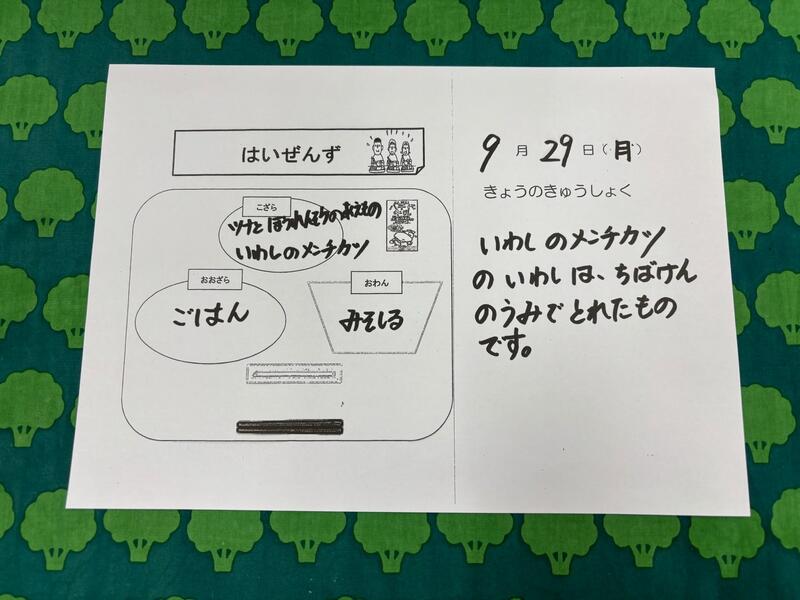 はいぜんず
こざら
ツナとほうれんそうのあえもの
いわしのメンチカツ
おおざら
ごはん
おわん
みそしる
9月29日(月)
きょうのきゅうしょく
いわしのメンチカツ
のいわしは、ちばけん
のうみでとれたもの
です。